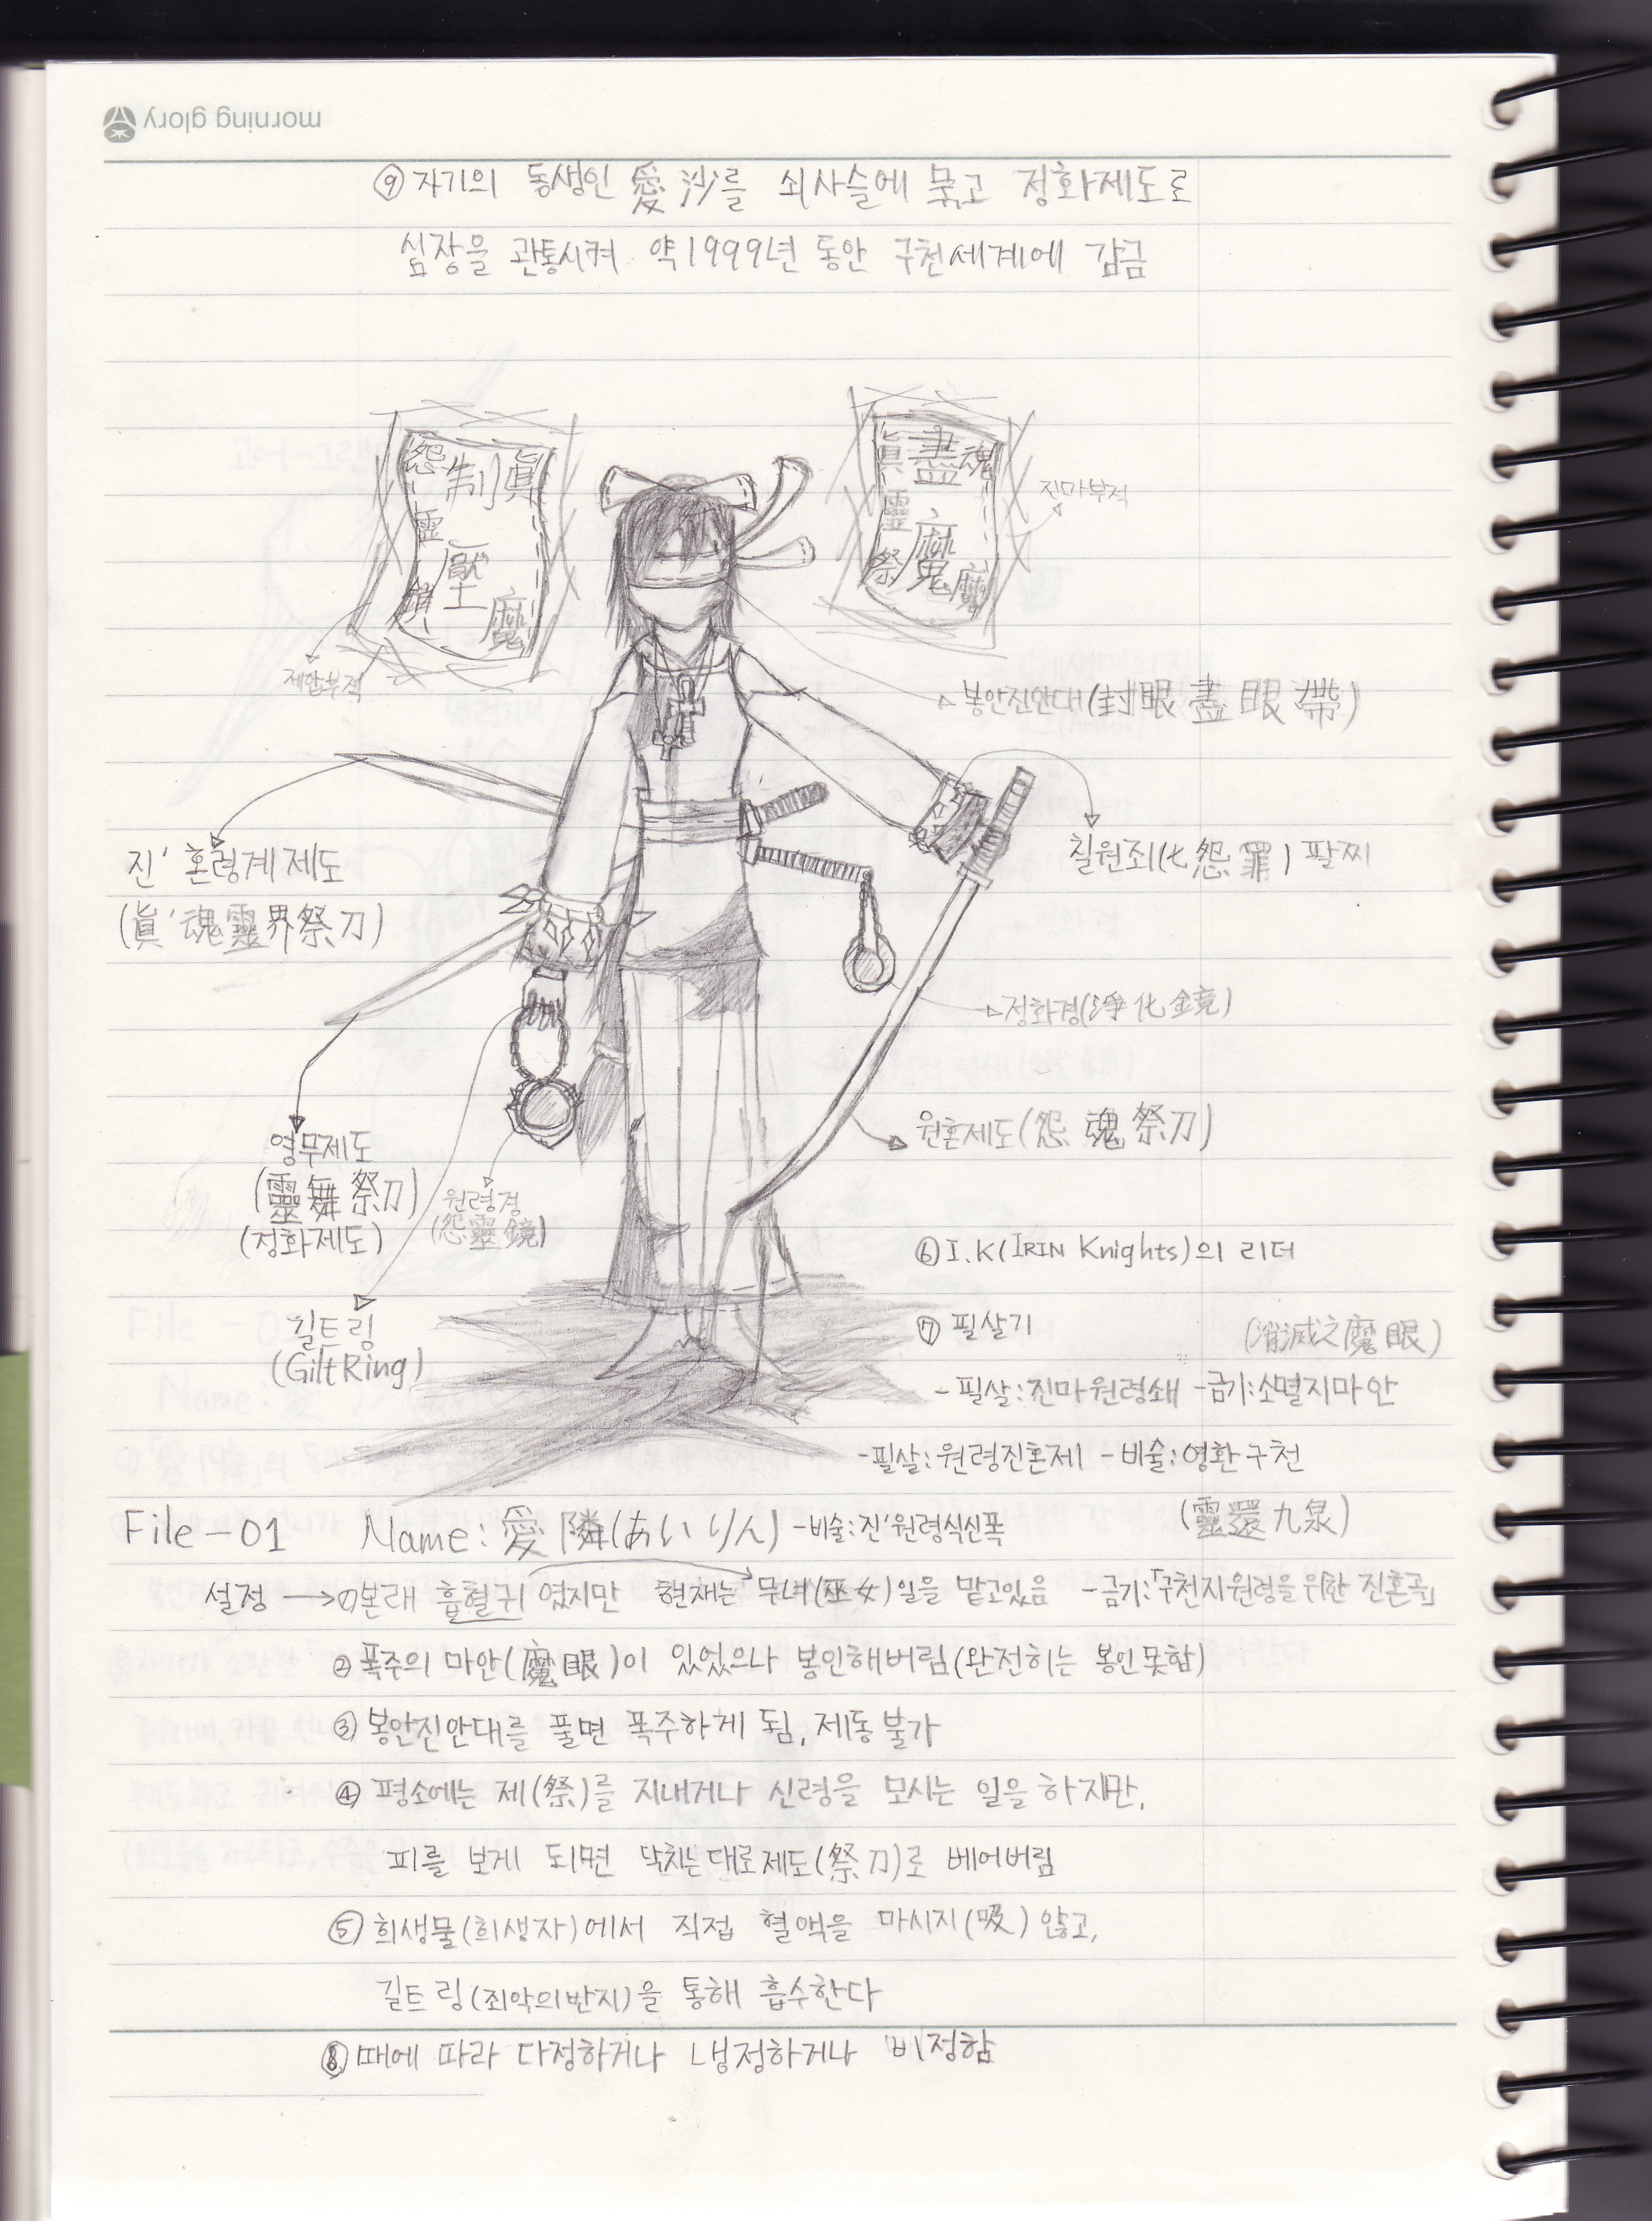 morning glory
⑨ 자기의 동생인 愛沙를 쇠사슬에 묶고 정화제도로
심장을 관통시켜 약 1999년 동안 구천세계에 감금
怨 制 眞
靈 壓
鎖 魔
眞 盡 魂
靈 魔
祭 魔
진마부적
제압부적
봉안진안대(封眼盡眼帶)
진' 혼령계제도
(眞'魂靈界祭刀)
칠원죄(七怨罪) 팔찌
정화경(淨化鏡)
원혼제도(怨魂祭刀)
영무제도
(靈舞祭刀)
(정화제도)
원령경
(怨靈鏡)
길트링
(GiltRing)
⑥ I.K(IRIN Knights)의 리더
⑦ 필살기
(消滅之魔眼)
-필살:진마원령쇄 -금기:소멸지마안
-필살:원령진혼제 -비술:영환구천
(靈還九泉)
File-01 Name:愛隣(あいりん) -비술:진'원령식신폭
설정 → ①본래 흡혈귀였지만 현재는 무녀(巫女)일을 맡고있음 -금기:「구천지원령을 위한 진혼곡」
② 폭주의 마안(魔眼)이 있었으나 봉인해버림(완전히는 봉인못함)
③ 봉안진안대를 풀면 폭주하게 됨, 제동불가
④ 평소에는 제(祭)를 지내거나 신령을 모시는 일을 하지만,
피를 보게 되면 닥치는대로 제도(祭刀)로 베어버림
⑤ 희생물(희생자)에서 직접 혈액을 마시지(吸) 않고,
길트링(죄악의반지)을 통해 흡수한다
⑧ 때에 따라 다정하거나 냉정하거나 비정함